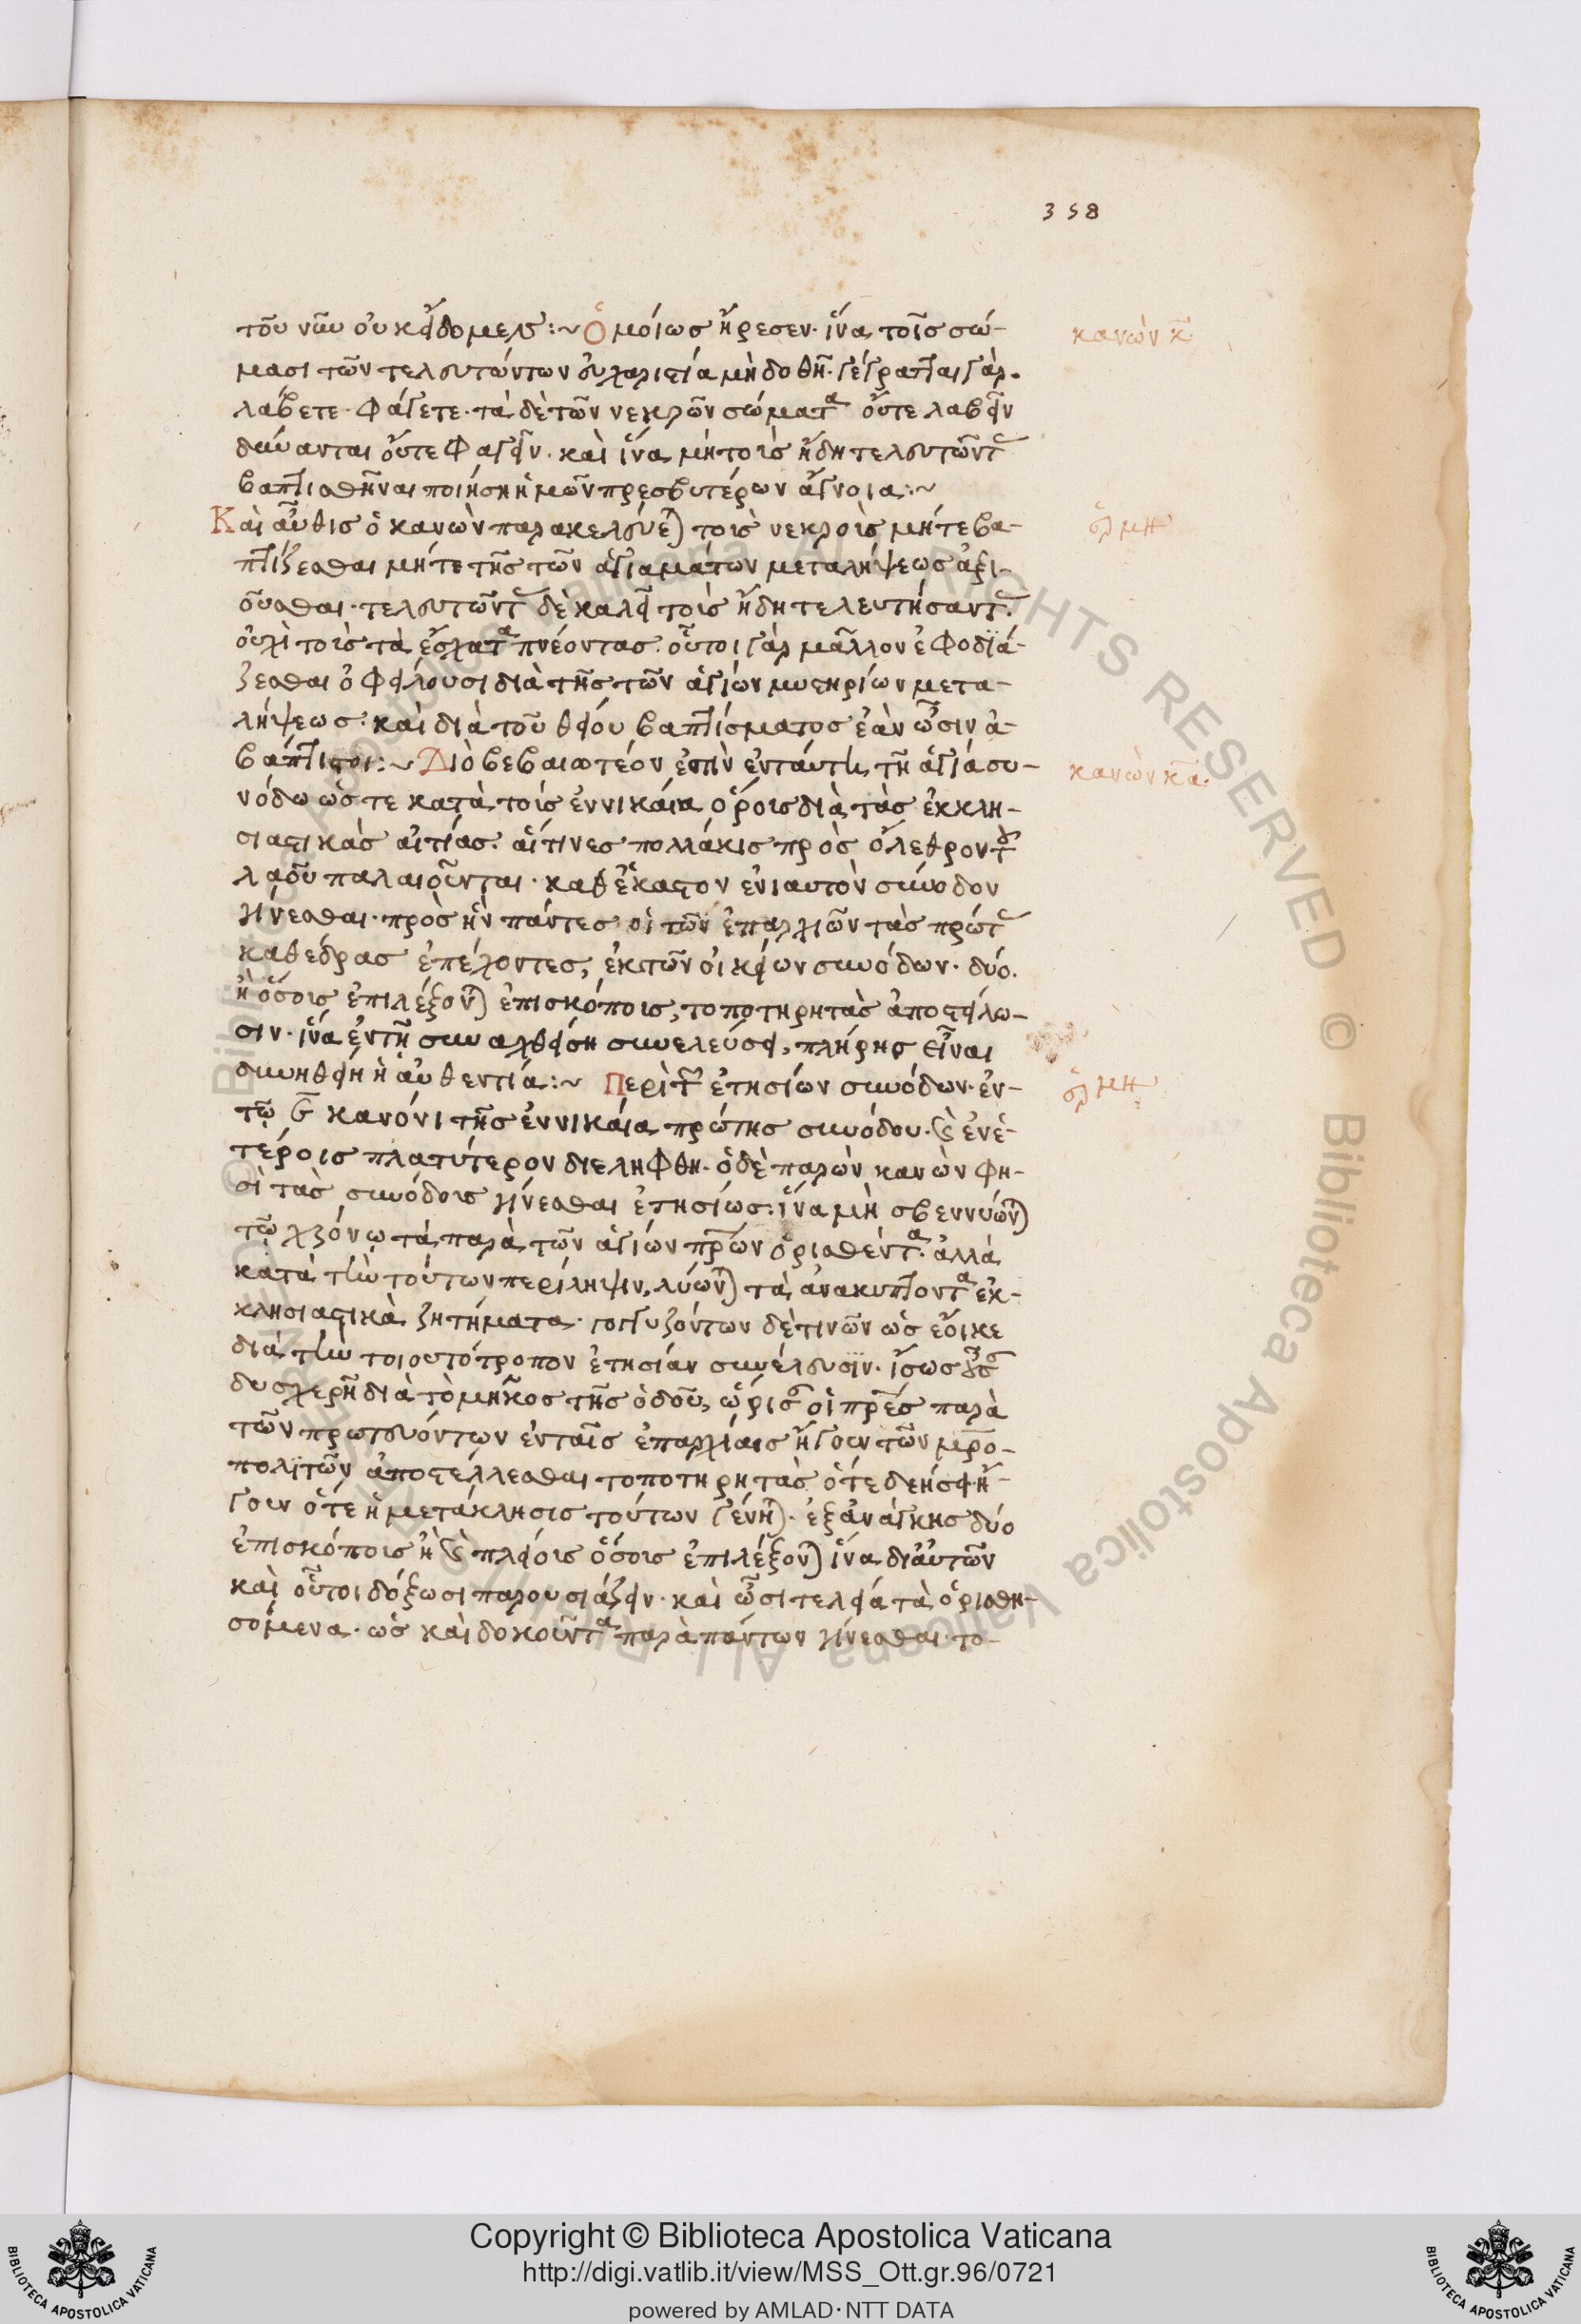 358
τοῦ νῦν οὐ κείδομεν :~ Ὁμοίως ἤρεσεν· ἵνα τοῖς σώ-
κανὼν κ̄
μασι τῶν τελευτώντων εὐχαριστία μὴ δοθῆ· γέγραπται γάρ.
λάβετε· φάγετε· τὰ δὲ τῶν νεκρῶν σώματα οὔτε λαβεῖν
δύνανται οὔτε φαγεῖν· καὶ ἵνα μὴ τοὺς ἤδη τελευτῶντας
βαπτισθῆναι ποιήση ἡμῶν πρεσβυτέρων ἄγνοια :~
Καὶ αὖθις ὁ κανὼν παρακελεύεται τοὺς νεκροὺς μήτε βα-
ἑρμη
πτίζεσθαι μήτε τῆς τῶν ἁγιαμάτων μεταλήψεως ἀξι-
οῦσθαι· τελευτῶντας δὲ καλεῖ τοὺς ἤδη τελευτήσαντας.
οὐχὶ τοὺς τὰ ἔσχατα πνέοντας· οὗτοι γὰρ μᾶλλον ἐφοδιά-
ζεσθαι ὀφείλουσι διὰ τῆς τῶν ἁγίων μυστηρίων μετα-
λήψεως· καὶ διὰ τοῦ θείου βαπτίσματος ἐὰν ὦσιν ἀ-
βάπτιστοι :~ Διὸ βεβαιωτέον ἐστὶν ἐν ταύτη τῆ ἁγία συ-
κανὼν κ̄α
νόδω ὥστε κατὰ τοὺς ἐν νικαία ὅρους διὰ τὰς ἐκκλη-
σιαστικὰς αἰτίας· αἵτινες πολλάκις πρὸς ὄλεθρον τοῦ
λαοῦ παλαιοῦνται· καθ' ἕκαστον ἐνιαυτὸν σύνοδον
γίνεσθαι· πρὸς ἣν πάντες οἱ τῶν ἐπαρχιῶν τὰς πρώτας
καθέδρας ἐπέχοντες, ἐκ τῶν οἰκείων συνόδων· δύο.
ἢ ὅσους ἐπιλέξονται ἐπισκόπους, τοποτηρητὰς ἀποστείλω-
σιν· ἵνα ἐν τῆ συναχθείση συνελεύσει, πλήρης εἶναι
δυνηθείη ἡ αὐθεντία :~ Περὶ τῶν ἐτησίων συνόδων· ἐν-
ἑρμη
τῷ κανόνι τῆς ἐν νικαία πρώτης συνόδου· καὶ ἐν ἑ-
τέροις πλατύτερον διελήφθη· ὁ δὲ παρὼν κανὼν φη-
σὶ τὰς συνόδους γίνεσθαι ἐτησίως· ἵνα μὴ σβεννύωνται
τῷ χρόνω τὰ παρὰ τῶν ἁγίων πρων ὁρισθέντα· ἀλλὰ
κατὰ τὴν τούτων περίληψιν, λύωνται τὰ ἀνακύπτοντα ἐκ-
κλησιαστικὰ ζητήματα· γογγυζόντων δὲ τινῶν ὡς ἔοικε
διὰ τὴν τοιουτότροπον ἐτησίαν συνέλευσιν· ἴσως
δυσχερῆ διὰ τὸ μῆκος τῆς ὁδοῦ, ὥρισαν οἱ πρες παρὰ
τῶν πρωτευόντων ἐν ταῖς ἐπαρχίαις ἤγουν τῶν μρο-
πολιτῶν ἀποστέλλεσθαι τοποτηρητὰς ὅτε δεήσει ἤ-
γουν ὅτε ἡ μετάκλησις τούτων γένηται· ἐξανάγκης δύο
ἐπισκόπους ἢ καὶ πλείους ὅσους ἐπιλέξονται ἵνα δι' αὐτῶν
καὶ οὗτοι δόξωσι παρουσιάζειν· καὶ ὦσι τελεία τὰ ὁρισθη-
σόμενα· ὡς καὶ δοκοῦντα παρὰ πάντων γίνεσθαι· το-
Copyright © Biblioteca Apostolica Vaticana
http://digi.vatlib.it/view/MSS_Ott.gr.96/0721
powered by AMLAD·NTT DATA